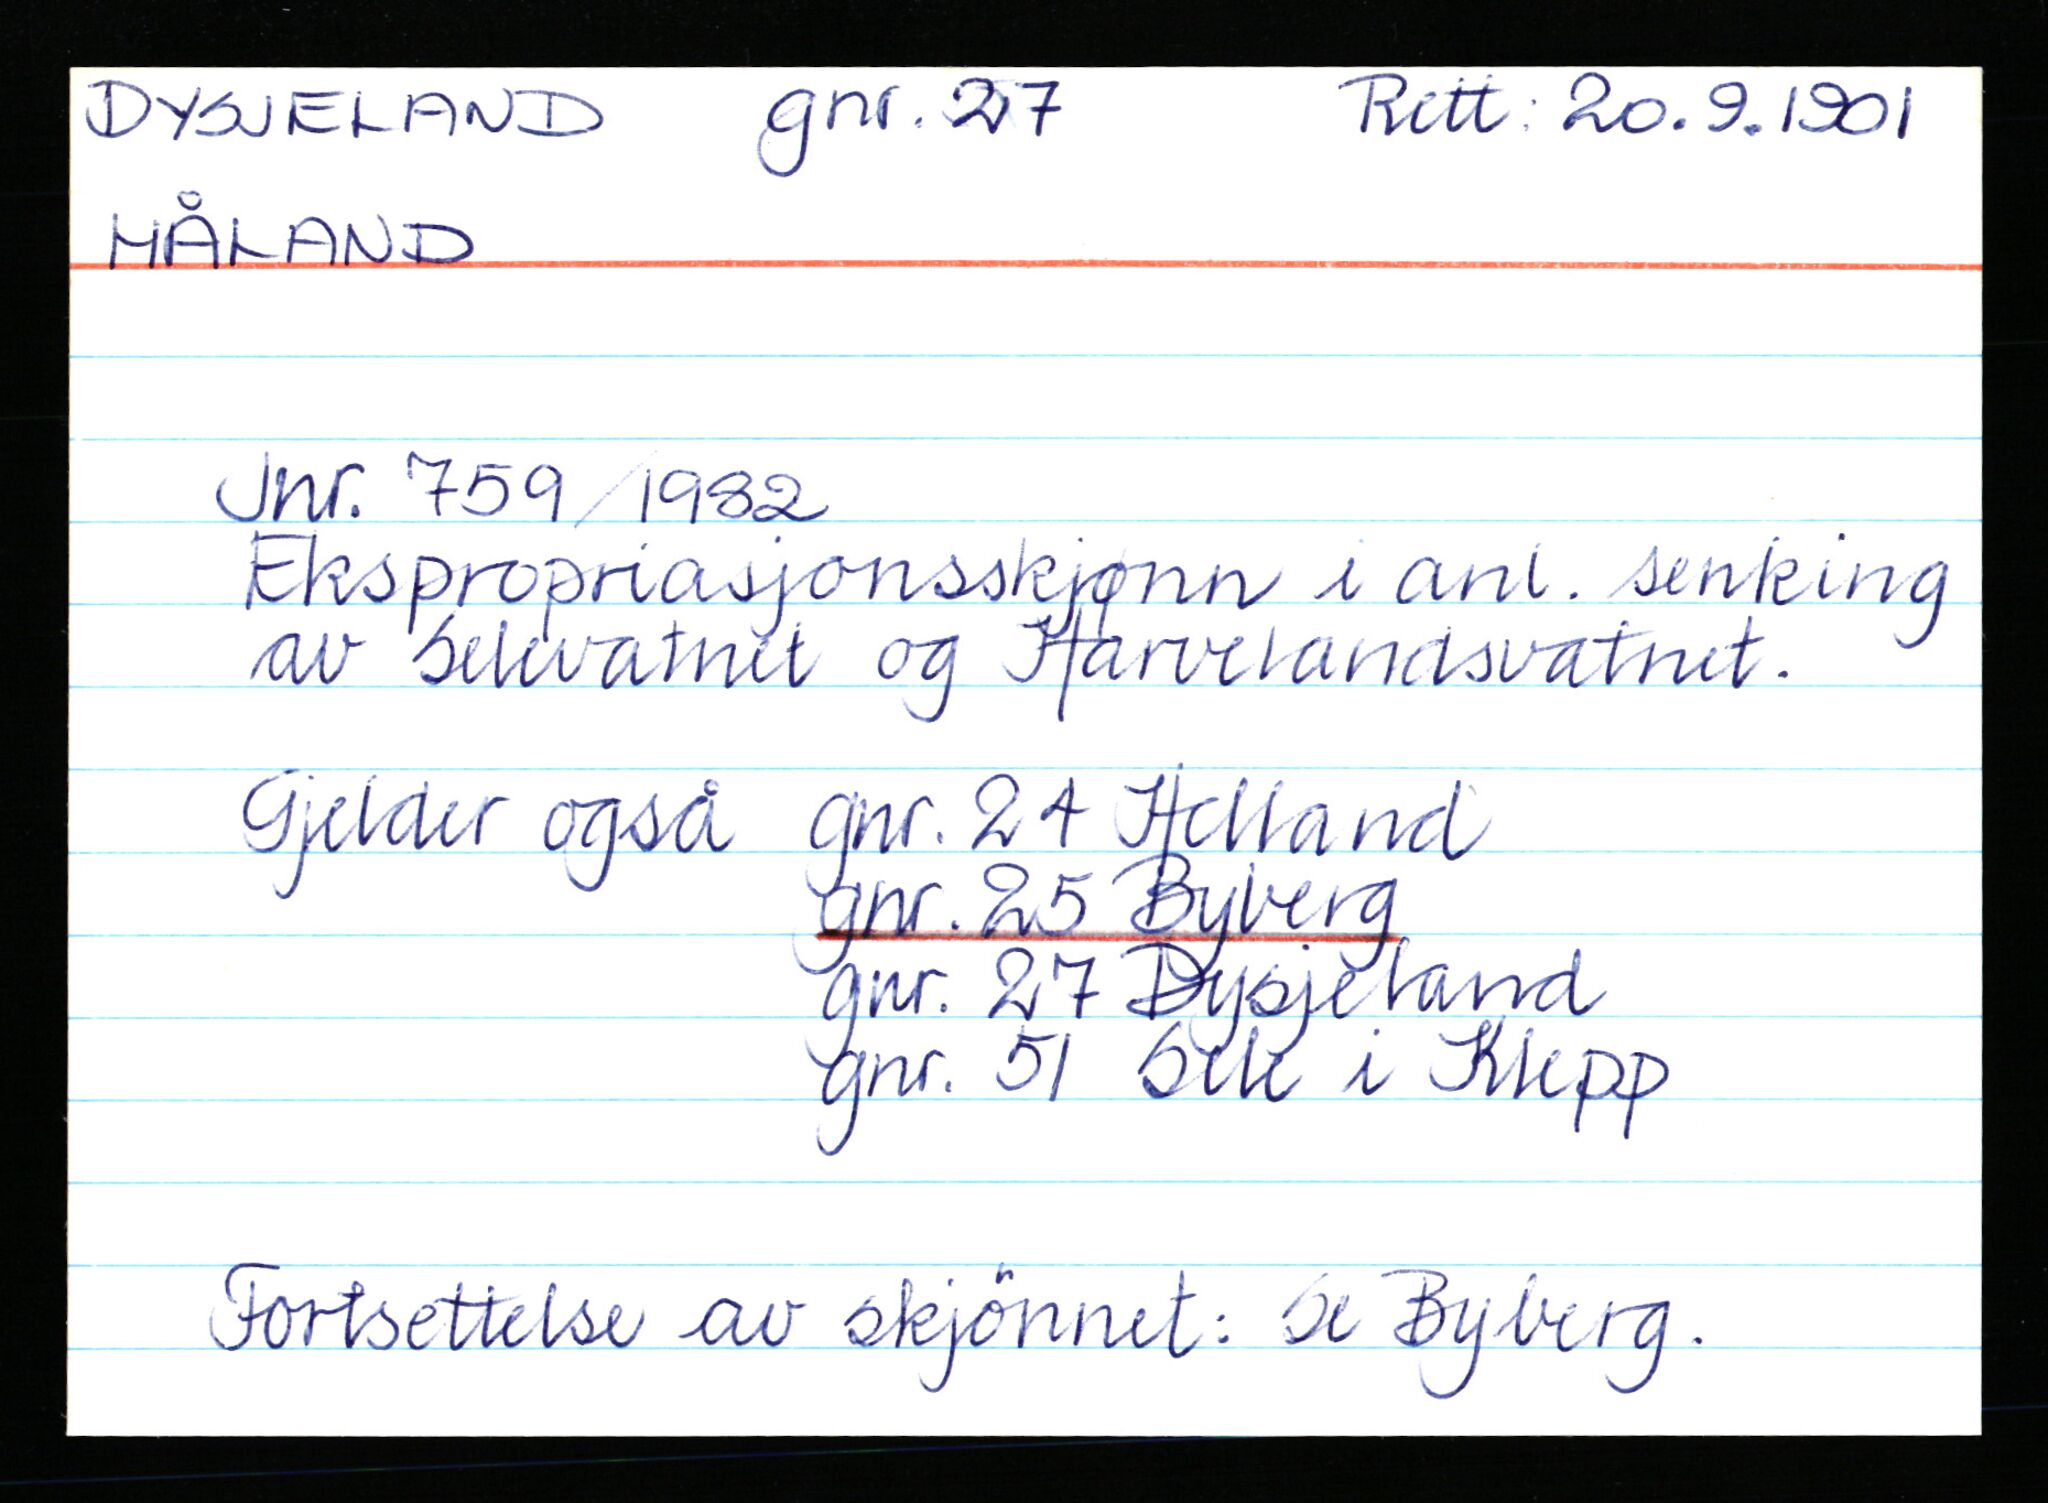 DYSJELAND gnr. 27 Rett: 20.9.1901
HÅLAND
Jnr. 759/1982
Ekspropriasjonsskjønn i anl. senking
av Selevatnet og Harvelandsvatnet.
Gjelder også gnr. 24 Helland
gnr. 25 Byberg
gnr. 27 Dysjeland
gnr. 51 Sele i Klepp
Fortsettelse av skjönnet: Se Byberg.